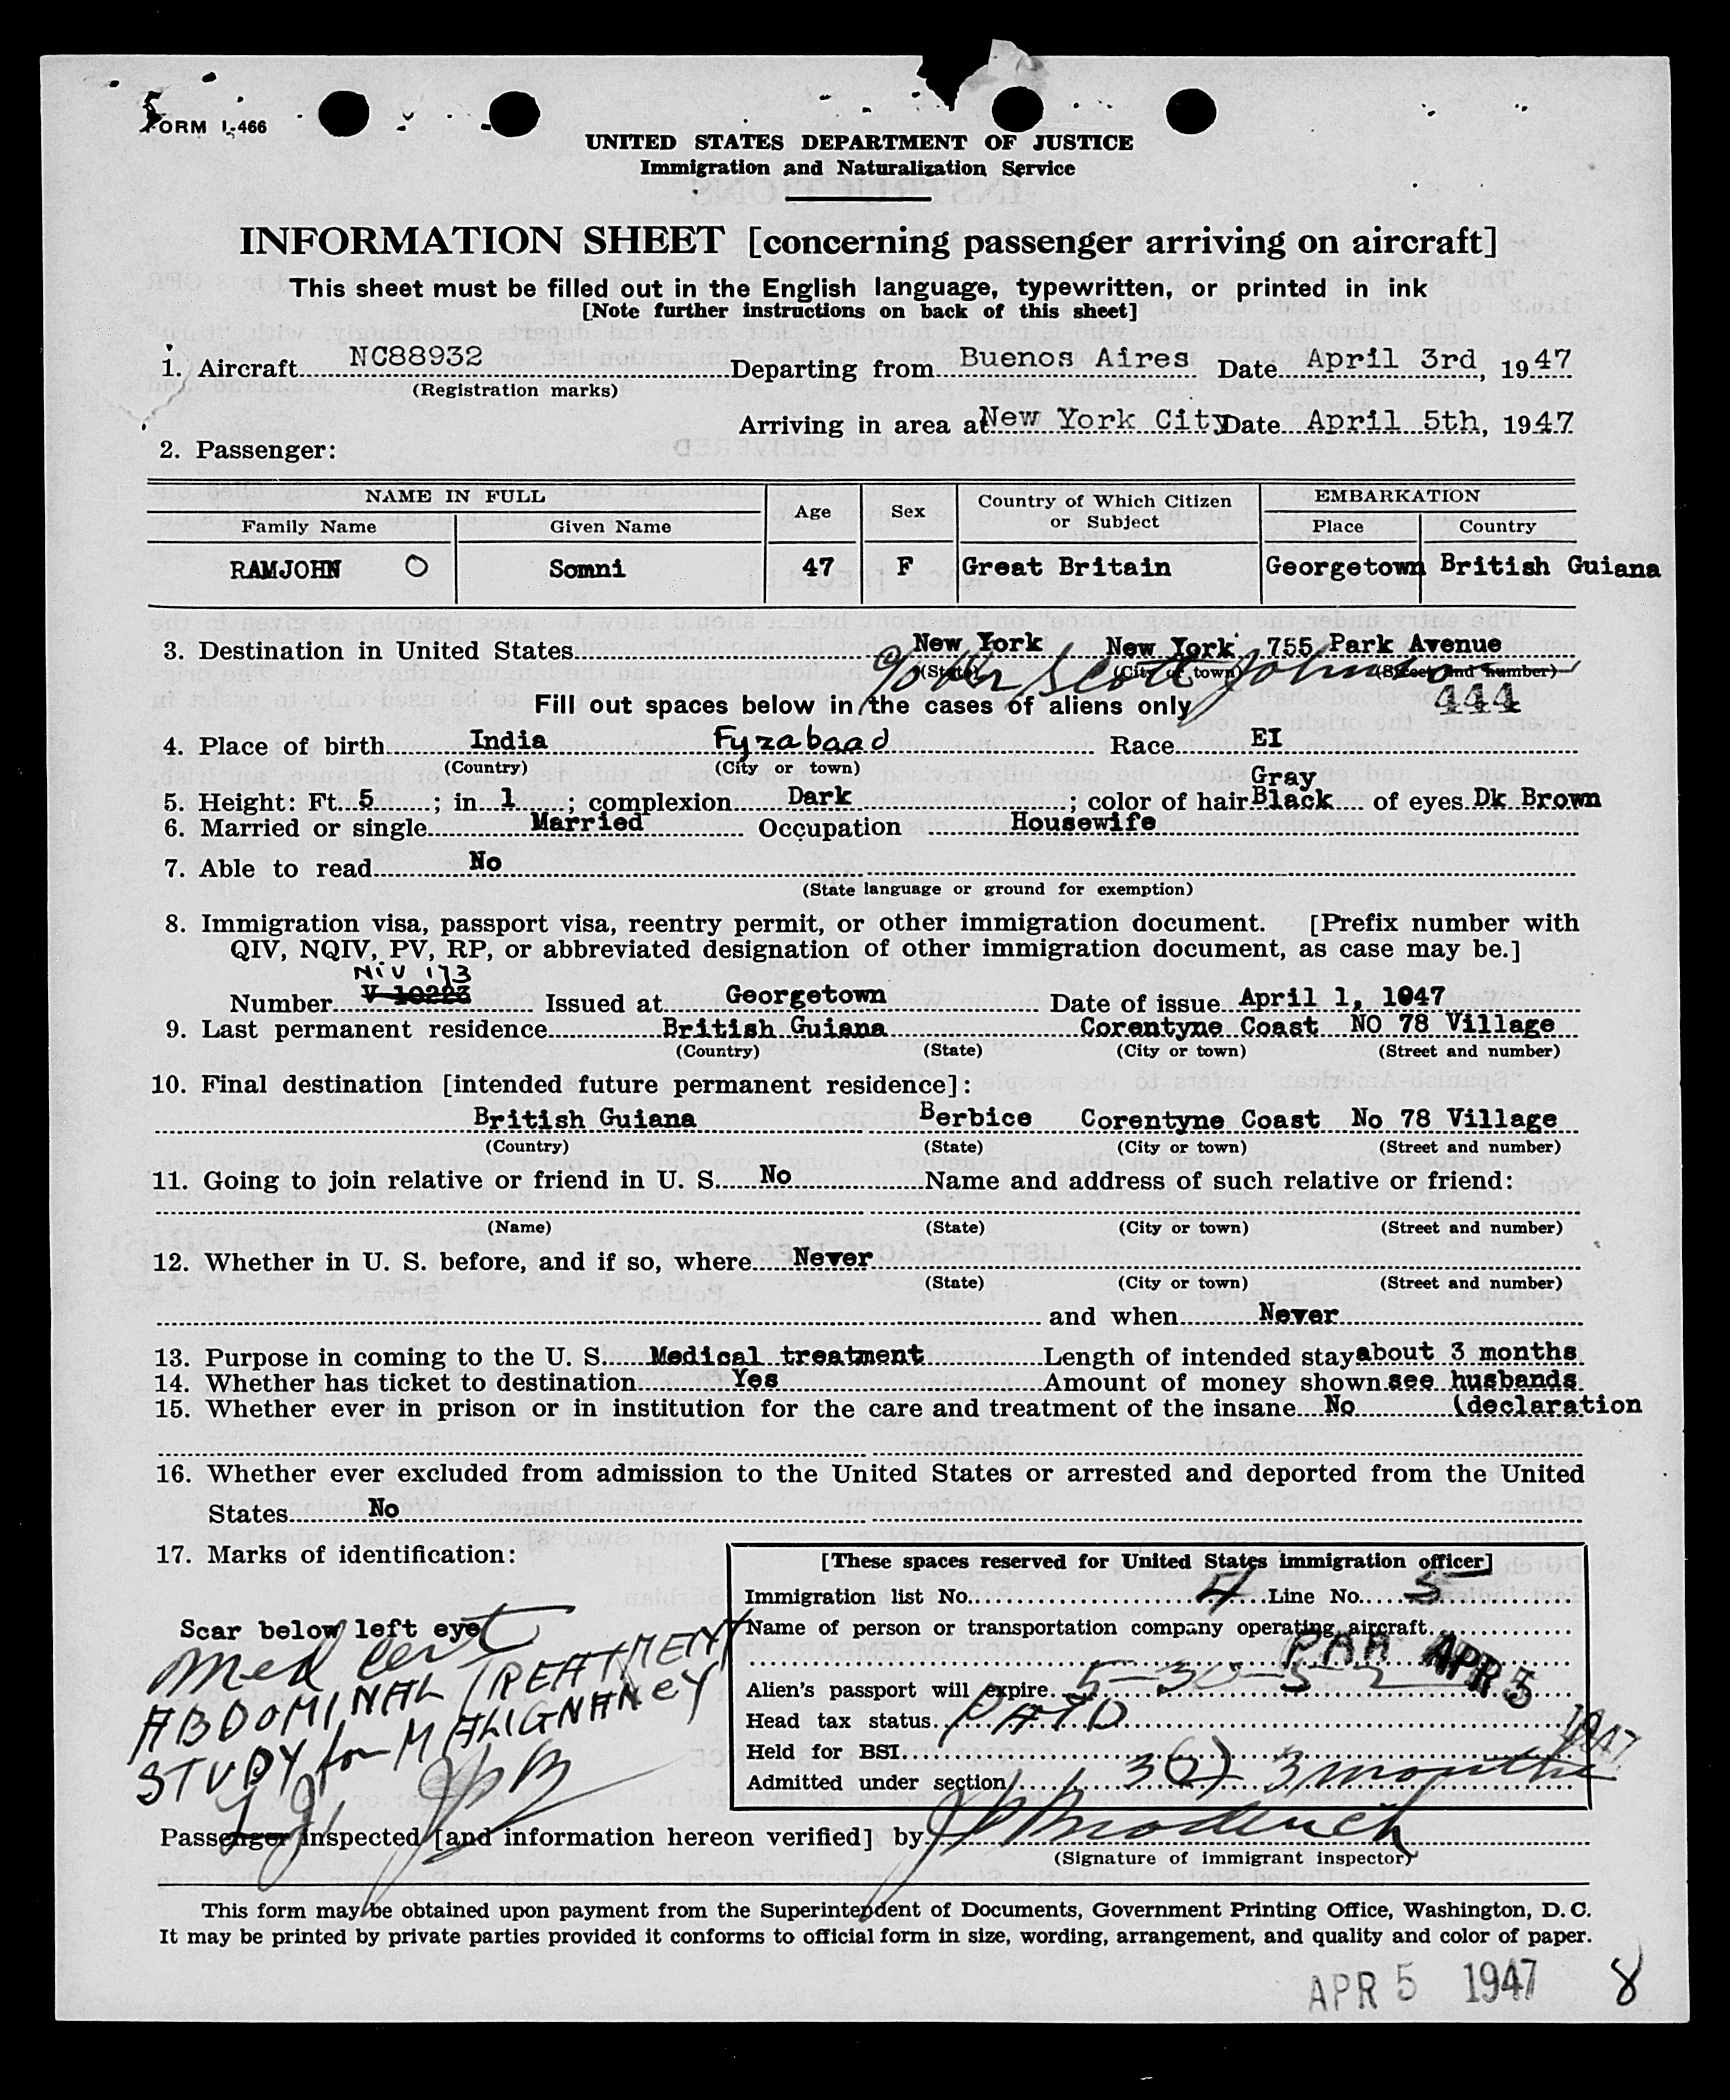 FORM I-466
UNITED STATES DEPARTMENT OF JUSTICE
Immigration and Naturalization Service
INFORMATION SHEET [concerning passenger arriving on aircraft]
This sheet must be filled out in the English language, typewritten, or printed in ink
[Note further instructions on back of this sheet]
1. Aircraft NC88932 Departing from Buenos Aires Date April 3rd, 1947
(Registration marks)
Arriving in area at New York City Date April 5th, 1947
2. Passenger:
NAME IN FULL Age Sex Country of Which Citizen or Subject EMBARKATION
Family Name Given Name Place Country
RAMJOHN O Somni 47 F Great Britain Georgetown British Guiana
3. Destination in United States New York New York 755 Park Avenue
(State) (City or town) (Street and number)
c/o Dr Scott Johnson
Fill out spaces below in the cases of aliens only 444
4. Place of birth India Fyzabaad Race EI
(Country) (City or town)
Gray
5. Height: Ft. 5; in. 1; complexion Dark; color of hair Black of eyes Dk Brown
6. Married or single Married Occupation Housewife
7. Able to read No
(State language or ground for exemption)
8. Immigration visa, passport visa, reentry permit, or other immigration document. [Prefix number with
QIV, NQIV, PV, RP, or abbreviated designation of other immigration document, as case may be.]
NIV 173
Number V 10223 Issued at Georgetown Date of issue April 1, 1947
9. Last permanent residence British Guiana Corentyne Coast NO 78 Village
(Country) (State) (City or town) (Street and number)
10. Final destination [intended future permanent residence]:
British Guiana Berbice Corentyne Coast No 78 Village
(Country) (State) (City or town) (Street and number)
11. Going to join relative or friend in U. S. No Name and address of such relative or friend:
(Name) (State) (City or town) (Street and number)
12. Whether in U. S. before, and if so, where Never
(State) (City or town) (Street and number)
and when Never
13. Purpose in coming to the U. S. Medical treatment Length of intended stay about 3 months
14. Whether has ticket to destination Yes Amount of money shown see husbands
15. Whether ever in prison or in institution for the care and treatment of the insane No (declaration
16. Whether ever excluded from admission to the United States or arrested and deported from the United
States No
17. Marks of identification:
Scar below left eye
Med cert
ABDOMINAL TREATMENT
STUDY for MALIGNANCY
JPB
[These spaces reserved for United States immigration officer]
Immigration list No. 4 Line No. 5
Name of person or transportation company operating aircraft
PAA APR 5 1947
Alien's passport will expire 5-30-52
Head tax status PAID
Held for BSI
Admitted under section 3(2) 3 months
Passenger inspected [and information hereon verified] by
(Signature of immigrant inspector)
This form may be obtained upon payment from the Superintendent of Documents, Government Printing Office, Washington, D. C.
It may be printed by private parties provided it conforms to official form in size, wording, arrangement, and quality and color of paper.
APR 5 1947 8